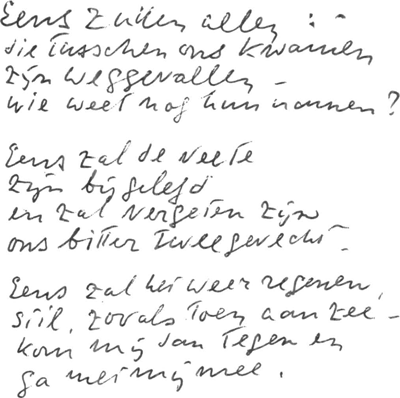 Eens zullen allen :
die tusschen ons kwamen
zijn weggevallen –
wie weet nog hun namen?
Eens zal de veete
zijn bijgelegd
en zal vergeten zijn
ons bitter tweegevecht –
Eens zal het weer regenen,
stil, zooals toen aan zee –
kom mij dan tegen en
ga met mij mee.